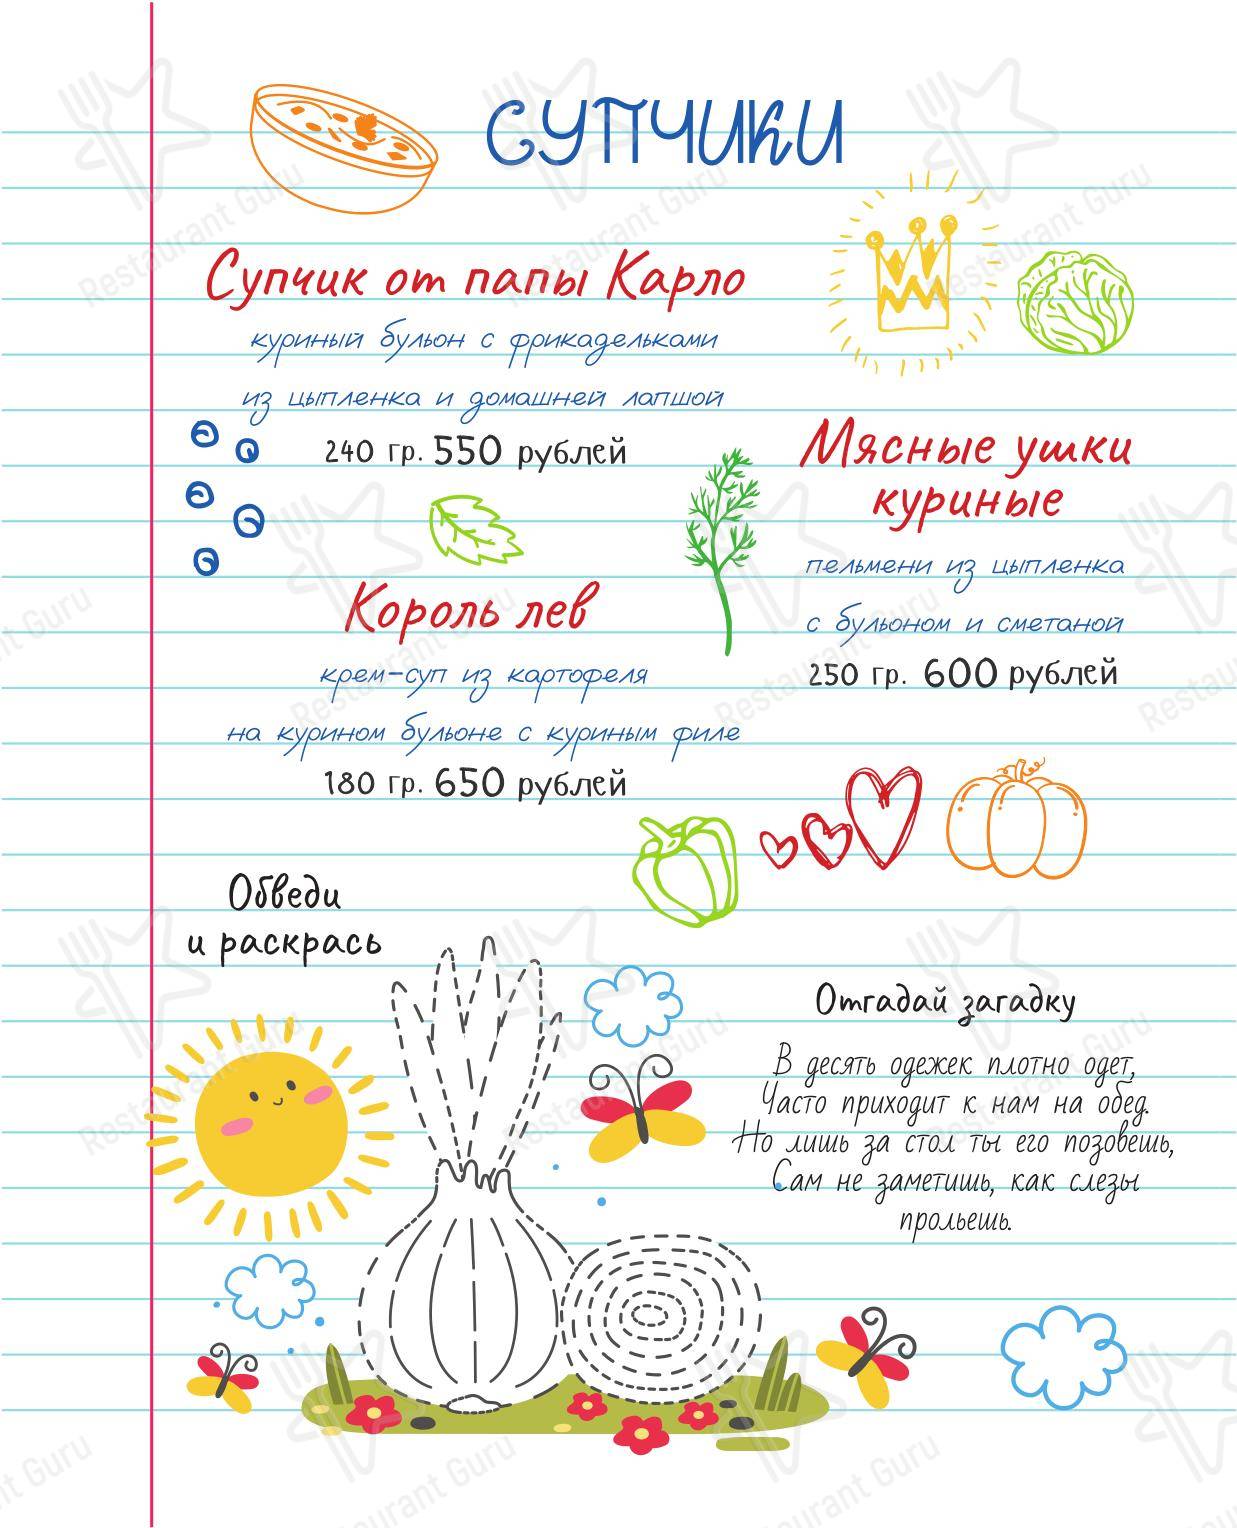 СУПЧИКИ
Супчик от папы Карло
куриный бульон с фрикадельками
из цыпленка и домашней лапшой
240 гр. 550 рублей
Мясные ушки
куриные
пельмени из цыпленка
с бульоном и сметаной
250 гр. 600 рублей
Король лев
крем-суп из картофеля
на курином бульоне с куриным филе
180 гр. 650 рублей
Обведи
и раскрась
Отгадай загадку
В десять одежек плотно одет,
Часто приходит к нам на обед.
Но лишь за стол ты его позовешь,
Сам не заметишь, как слезы
прольешь.
Restaurant Guru